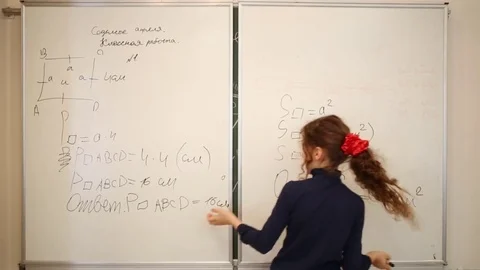 Седьмое апреля.
Классная работа.
B a C
a и a 4 см
A D
P□ = a·4
P□ABCD = 4·4 (см)
P□ABCD = 16 см
Ответ. P□ABCD = 16 см
S□ = a²
S□ =
S□